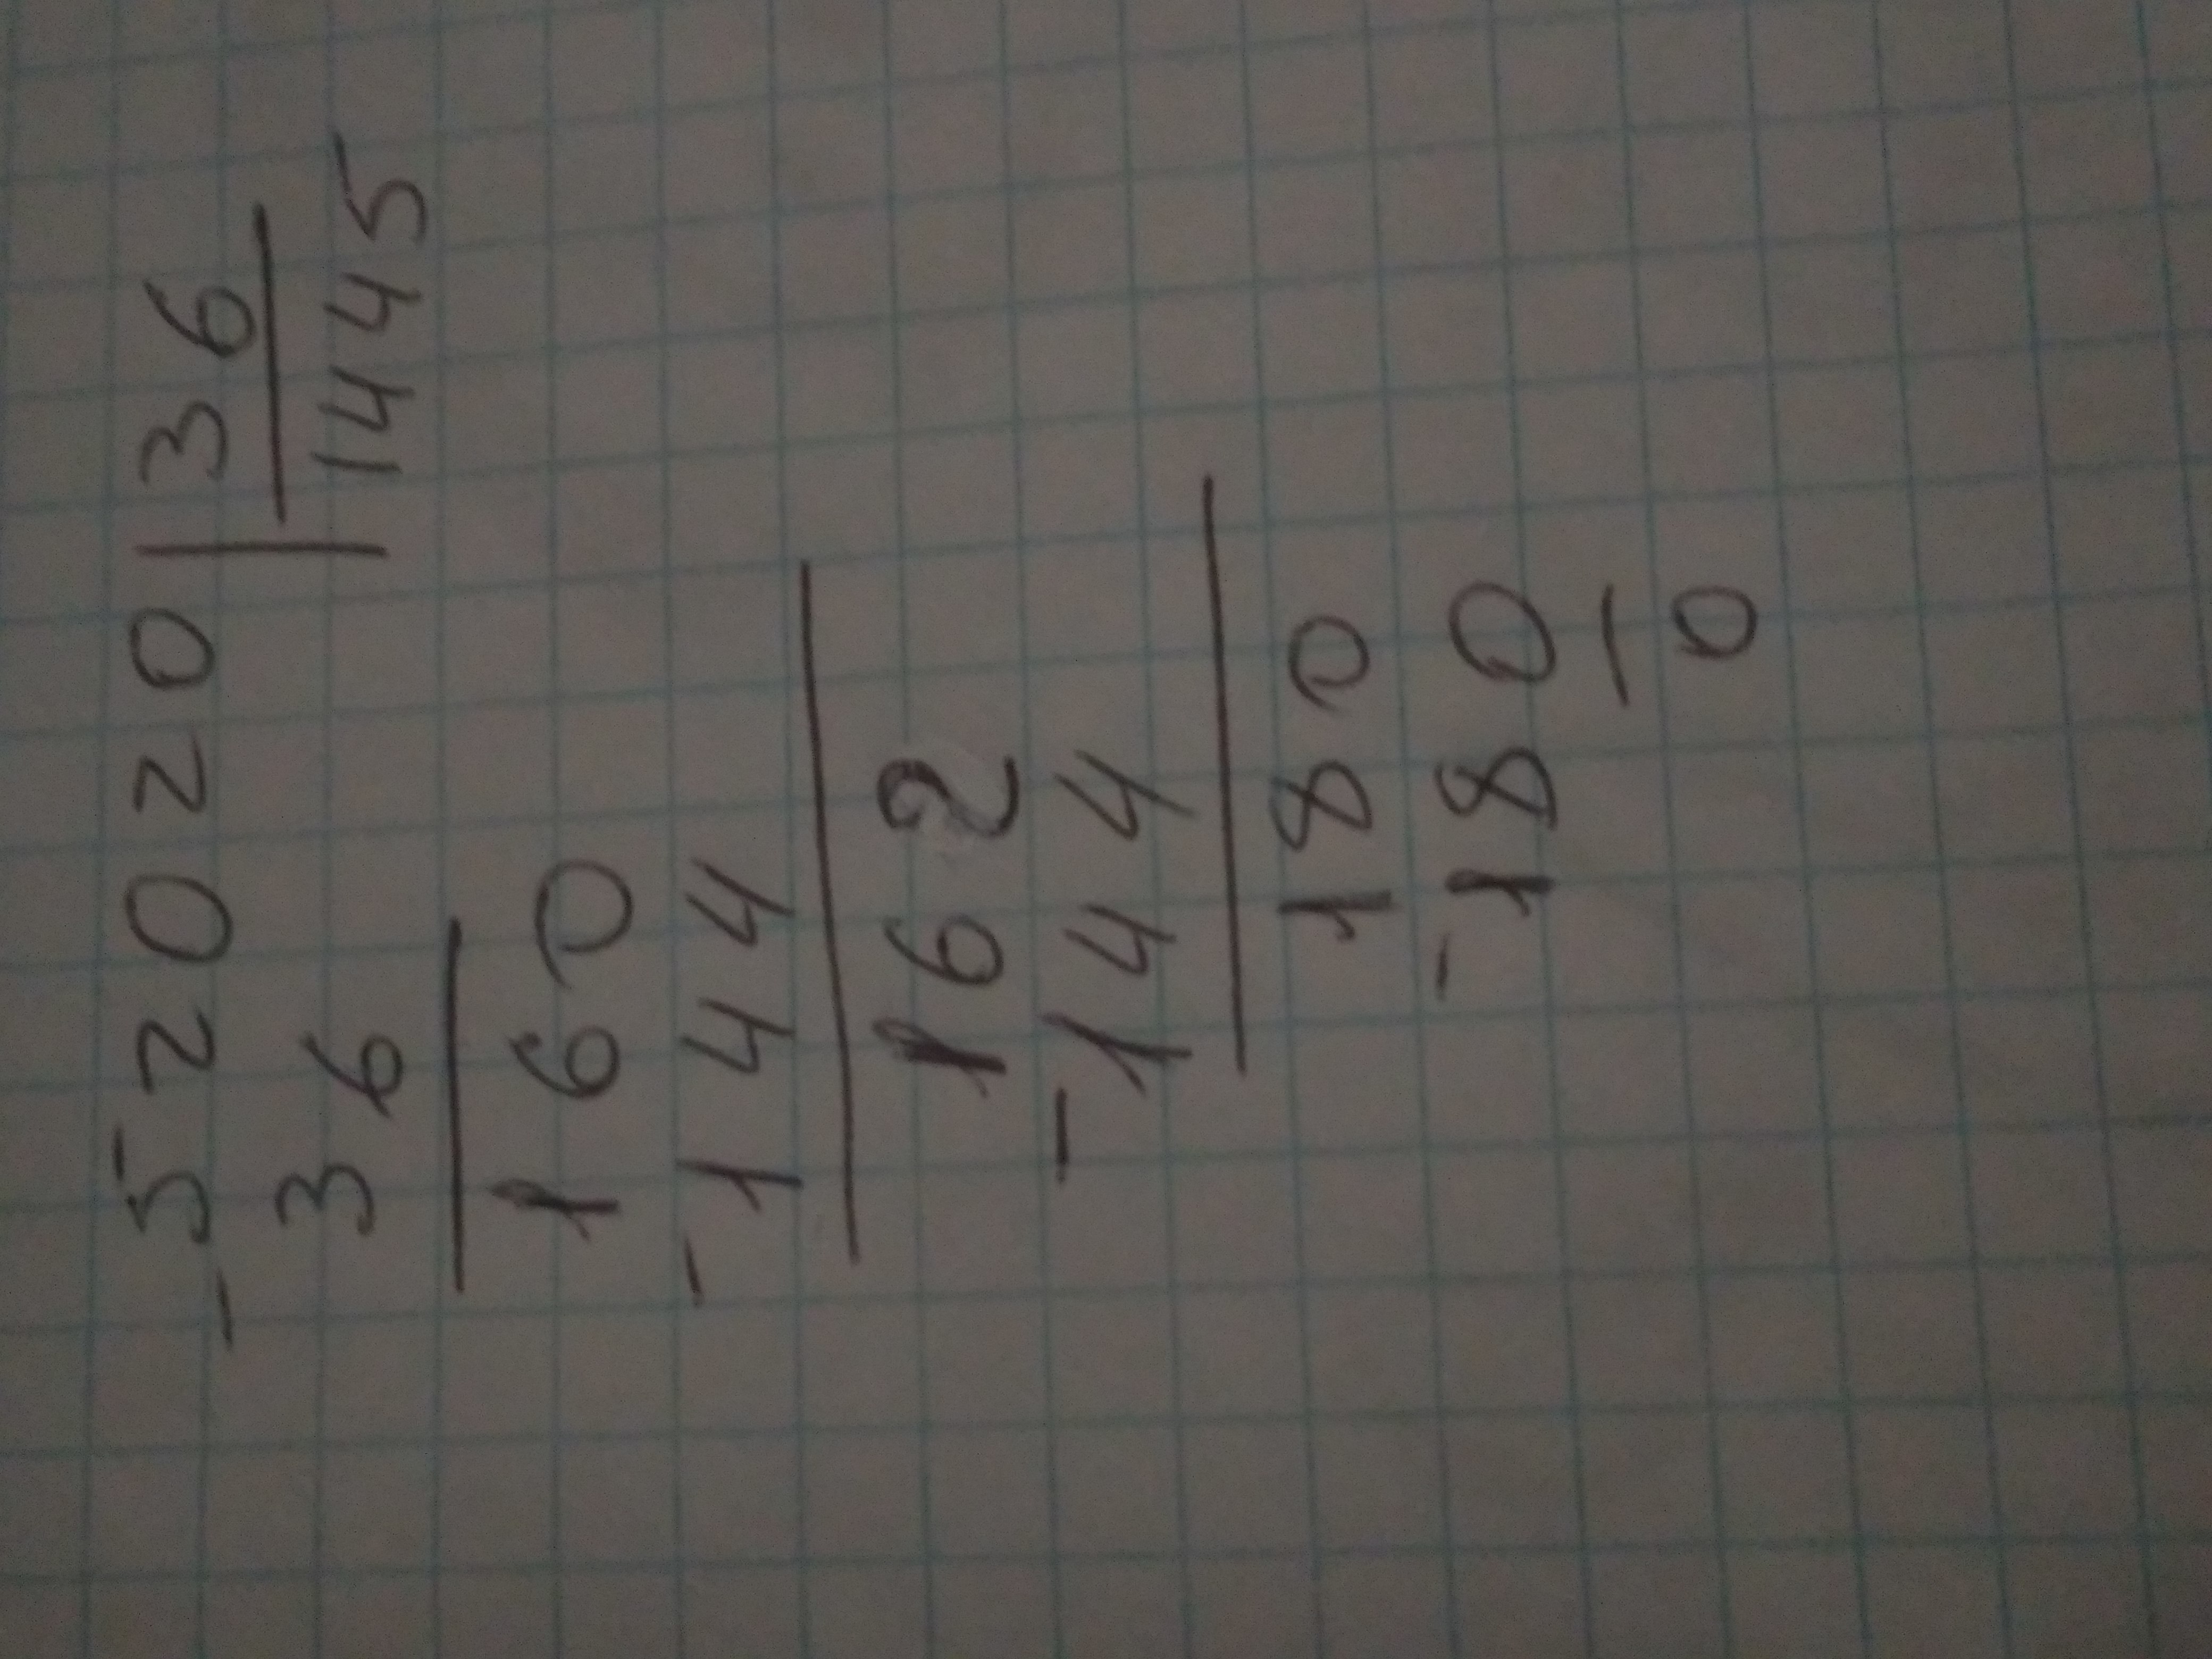 - 52020 | 36
36 | 1445
160
- 144
162
- 144
180
- 180
0